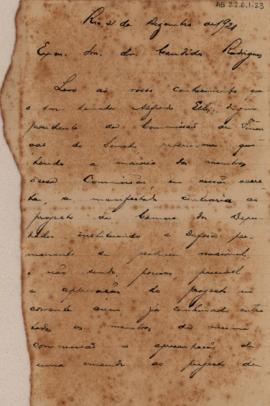 AB 22.6.1-23
Rio, 21 de Dezembro de 921
Exmo. Snr. Dr. Candido Rodrigues
Levo ao vosso conhecimento que
o Snr. Senador Alfredo Ellis, digno
presidente da Commissão de Finan
ças do Senado
tendo a maioria dos membros
dessa Commissão, em sessão secre
ta, se manifestado contraria ao
projecto da Camara dos Depu
tados instituindo a Defesa per
manente da producção nacional,
e não sendo, porisso, possivel
a approvação do projecto no
corrente anno, já combinado entre
todos os membros da mesma
commissão a apresentação de
uma emenda ao projecto de